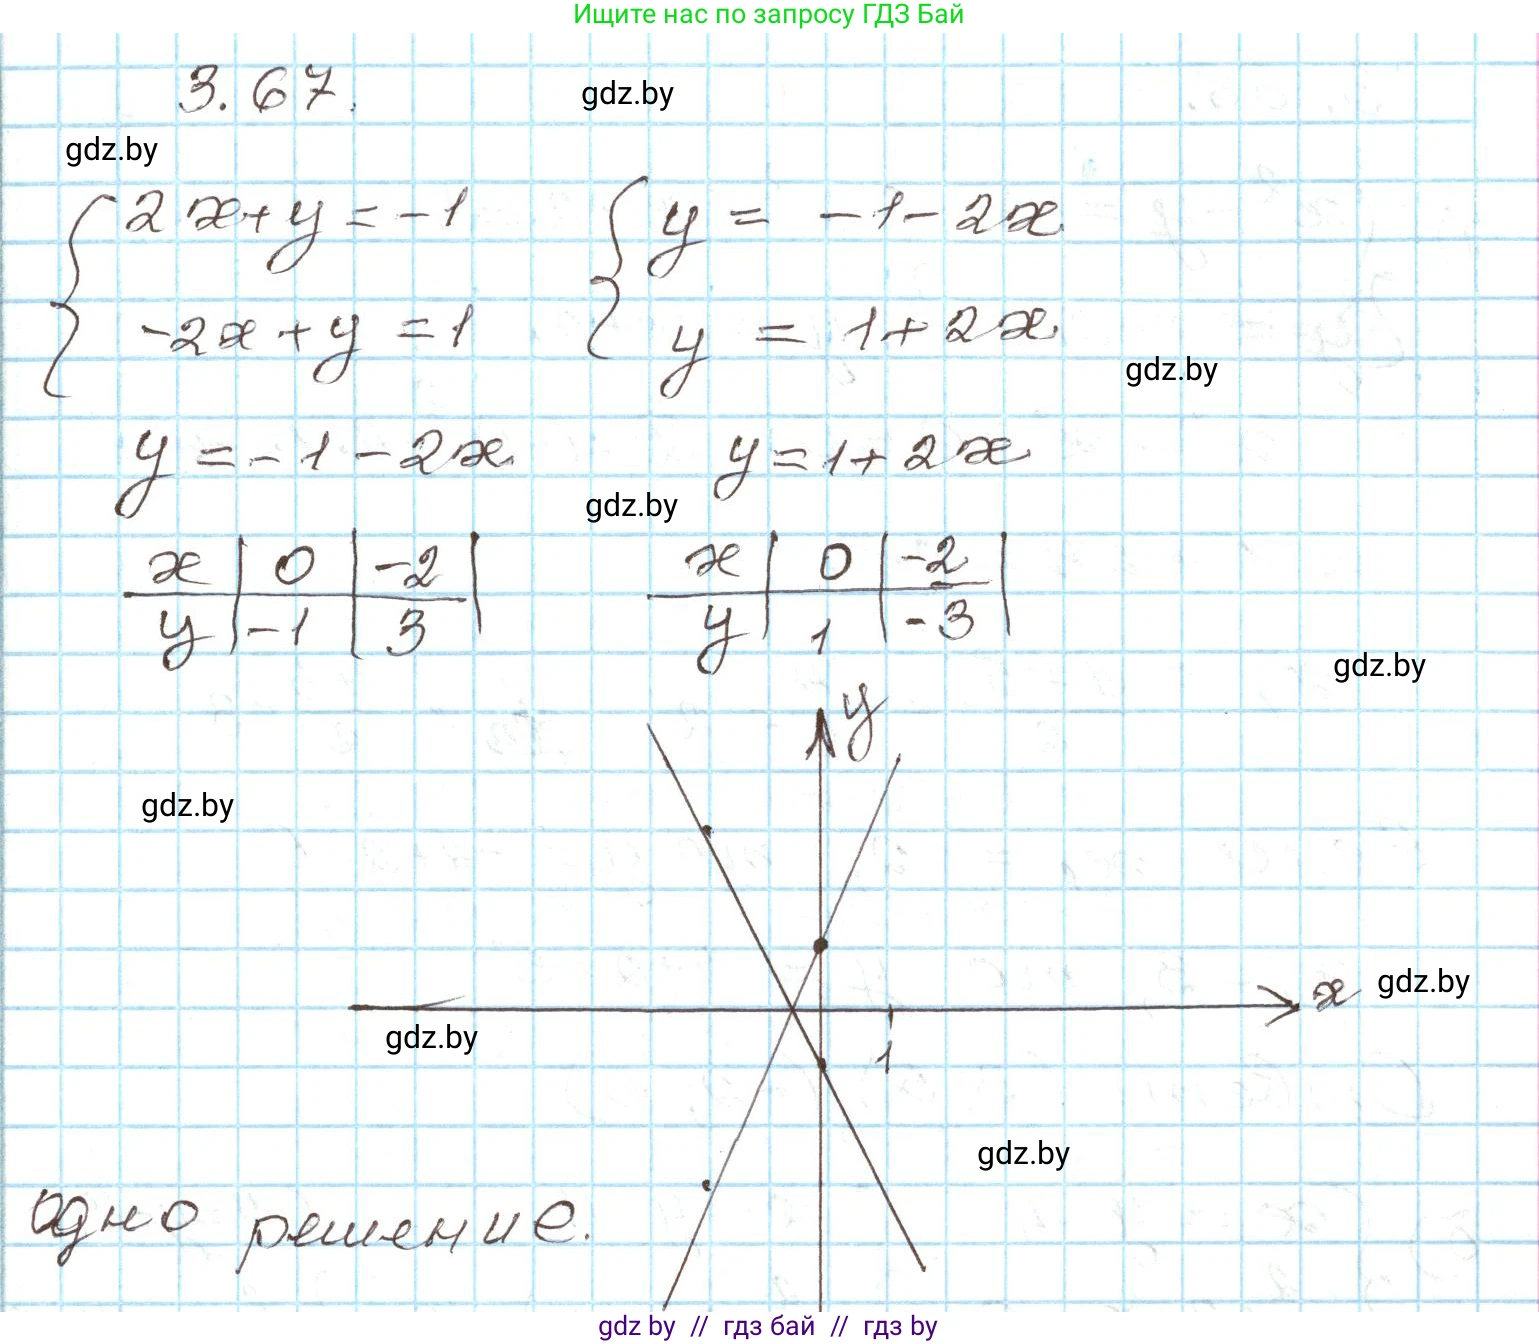 Ищите нас по запросу ГДЗ Бай
3.67.
gdz.by
gdz.by
2x+y=-1
y = -1-2x
-2x+y=1
y = 1+2x
gdz.by
y=-1-2x
y=1+2x
gdz.by
x | 0 | -2 |
y | -1 | 3 |
x | 0 | -2 |
y | 1 | -3 |
gdz.by
y
gdz.by
x
gdz.by
gdz.by
1
gdz.by
одно решение.
gdz by // гдз бай // гдз by